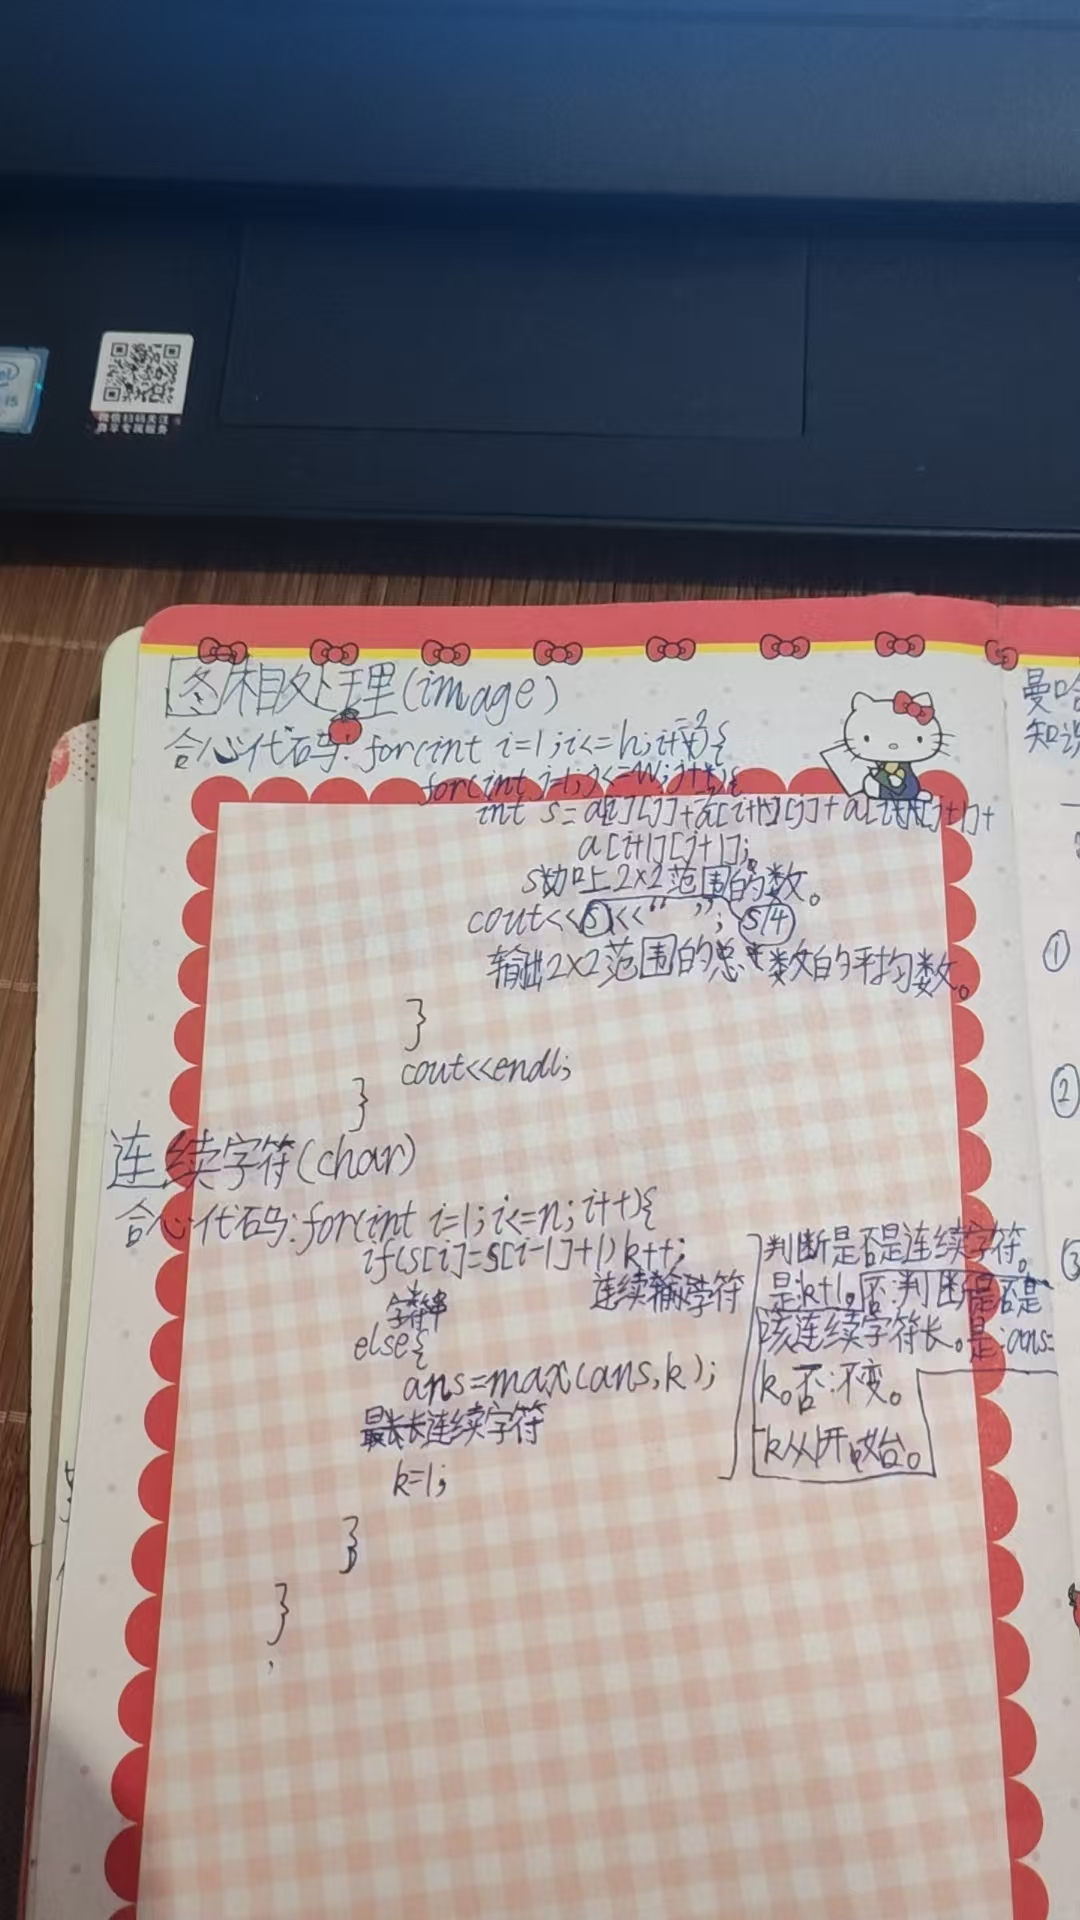 微信扫码关注
i5
图相处理(image)
合心代码:for(int i=1;i<=h;i+=2){
for(int j=1;j<=w;j+
int s=a[i][j]+a[i+1][j]+a[i][j+1]+
a[i+1][j+1];
s加上2×2范围的数。
cout<<s<<" "; s/4
输出2×2范围的总数的平均数。
}
cout<<endl;
}
连续字符(char)
合心代码:for(int i=1;i<=n;i++){
if(s[i]=s[i-1]+1)k++;
字符串
连续字符
else{
ans=max(ans,k);
最长连续字符
k=1;
}
}
判断是否是连续字符。
是:k+1。否:判断是否是
该连续字符长。是:ans=
k。否:不变。
k从1开始。
曼哈
知识
①
②
③